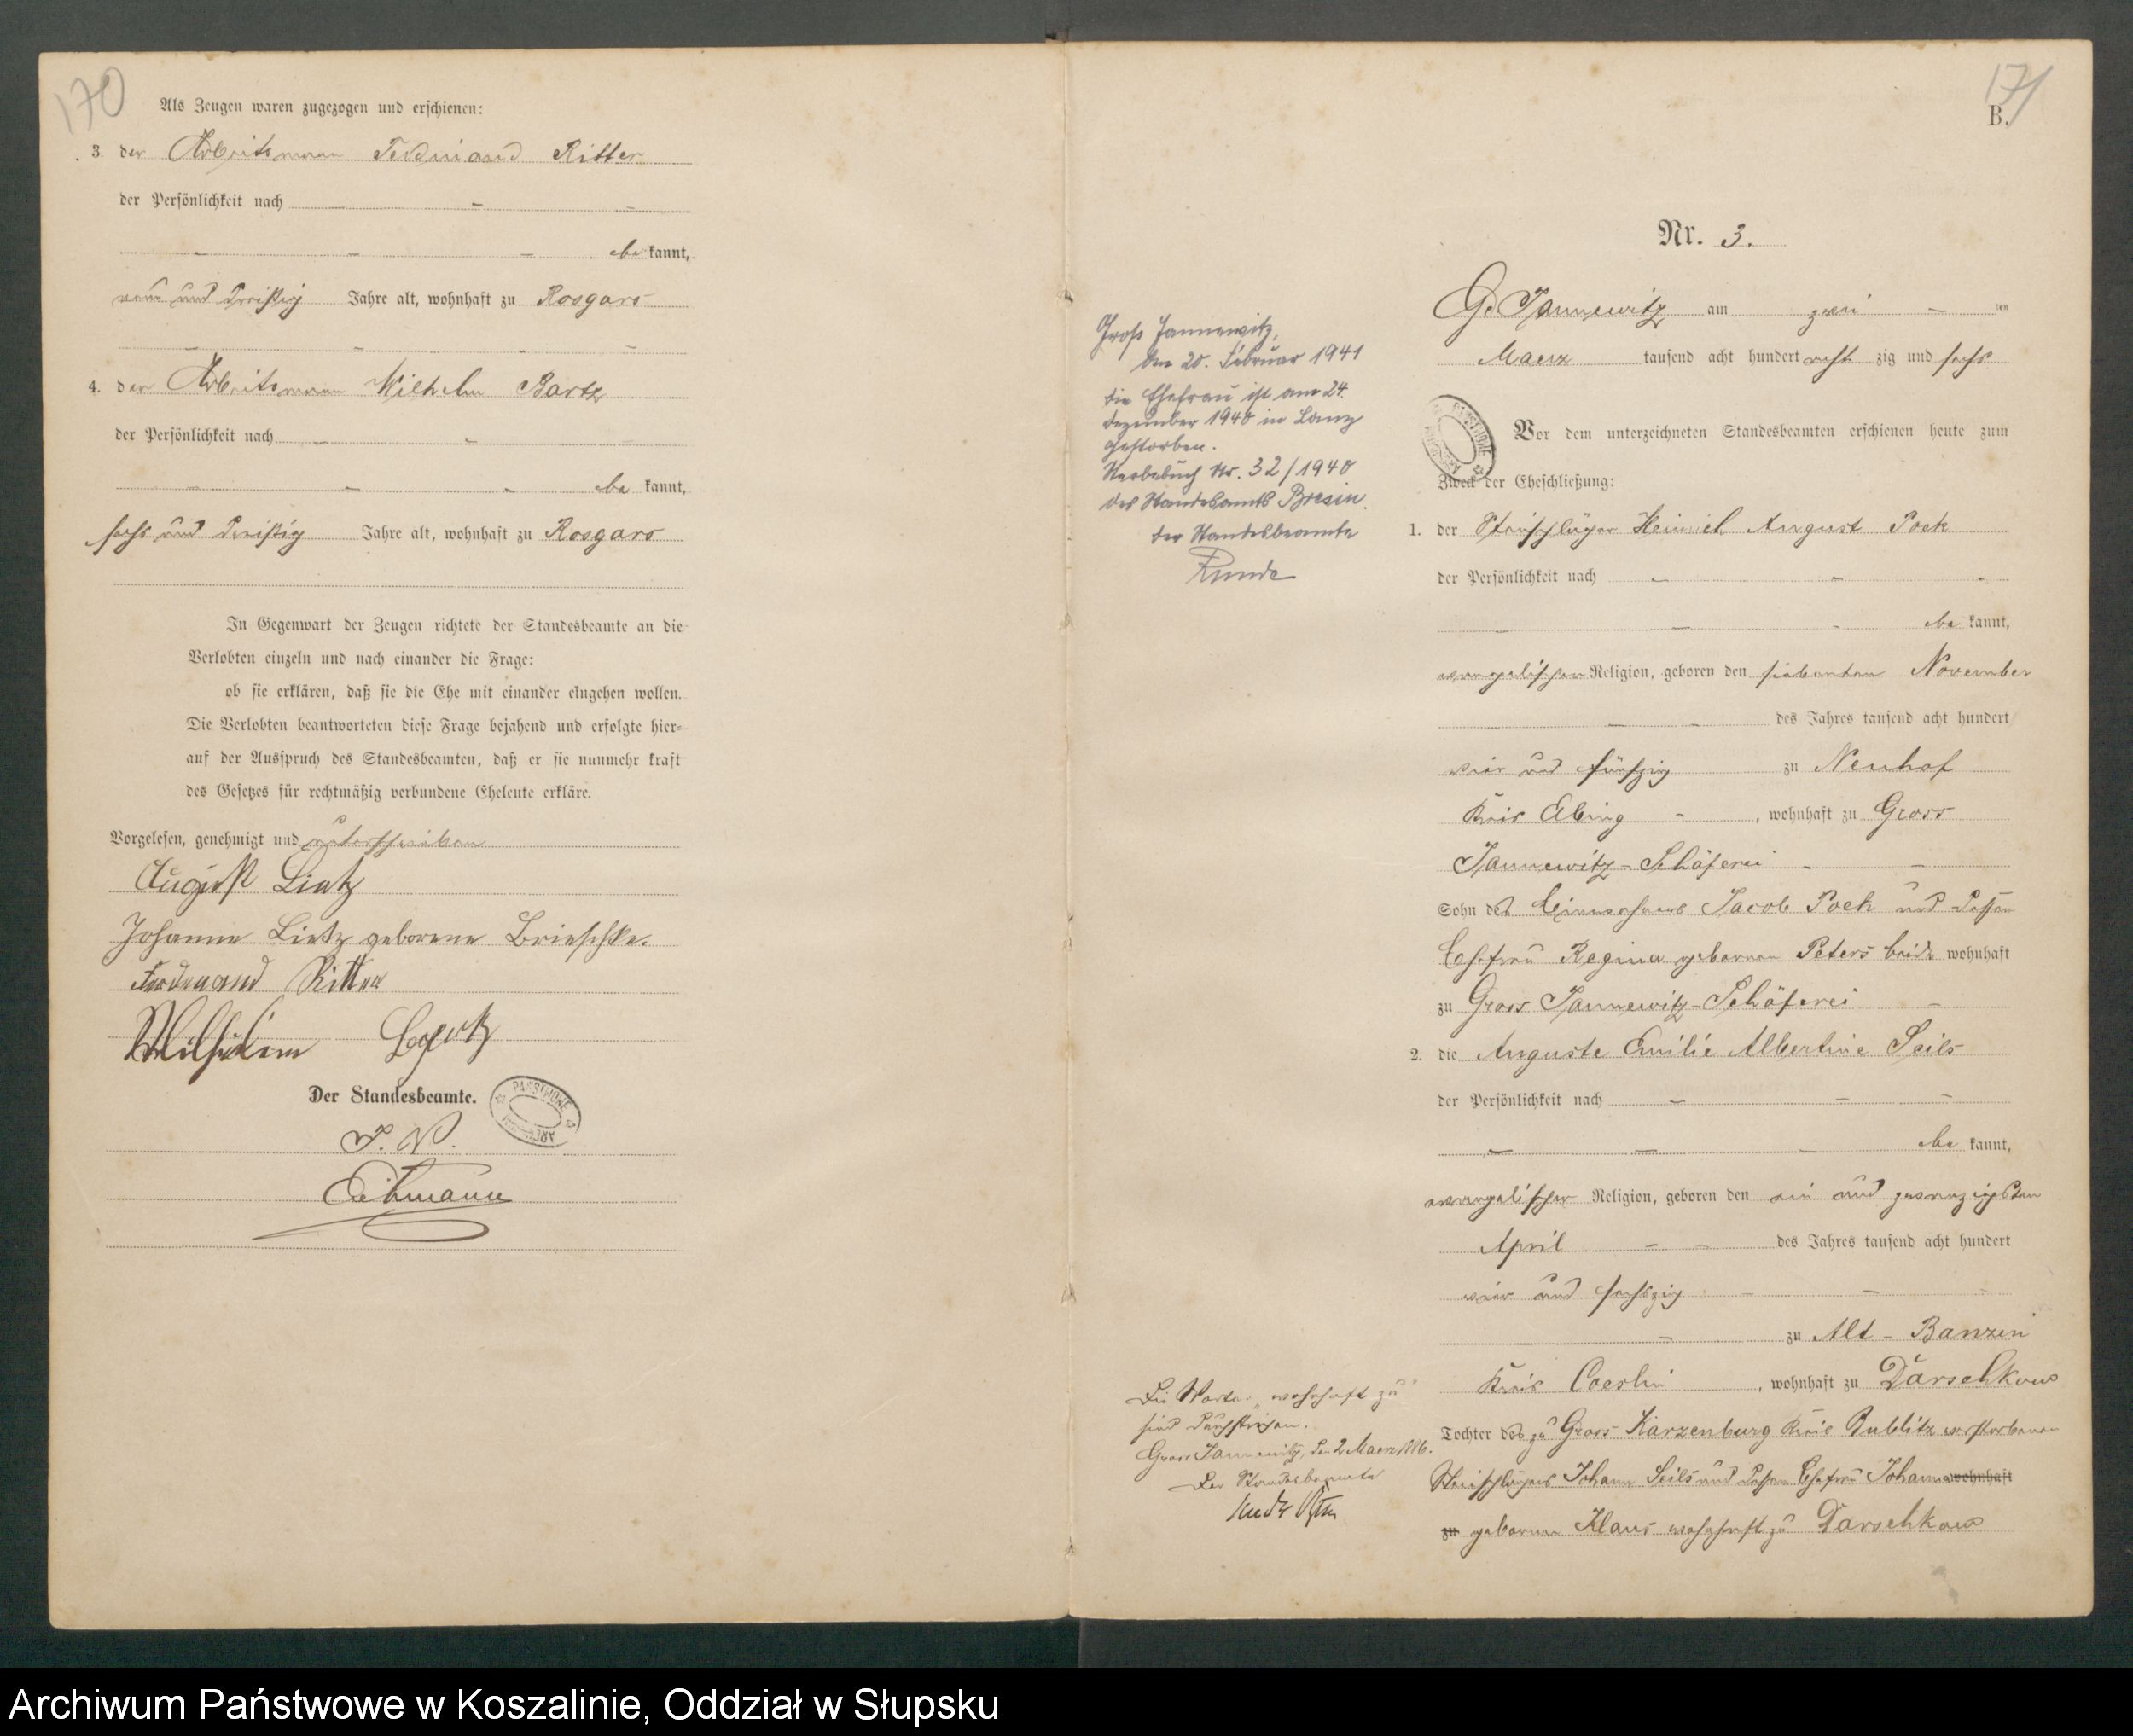 170
Als Zeugen waren zugezogen und erschienen:
3. der Arbeitsmann Ferdinand Ritter
der Persönlichkeit nach
be kannt,
und dreißig Jahre alt, wohnhaft zu Rosgars
4. der Arbeitsmann Wilhelm Bartz
der Persönlichkeit nach
be kannt,
sechs und dreißig Jahre alt, wohnhaft zu Rosgars
In Gegenwart der Zeugen richtete der Standesbeamte an die
Verlobten einzeln und nach einander die Frage:
ob sie erklären, daß sie die Ehe mit einander eingehen wollen.
Die Verlobten beantworteten diese Frage bejahend und erfolgte hier-
auf der Ausspruch des Standesbeamten, daß er sie nunmehr kraft
des Gesetzes für rechtmäßig verbundene Eheleute erkläre.
Vorgelesen, genehmigt und unterschrieben
August Lietz
Johanna Lietz geborene Brieschke.
Ferdinand Ritter
Wilhelm
Der Standesbeamte.
171
B.
Nr. 3.
Gr Jannewitz am zwei ten
Maerz tausend acht hundert acht zig und sechs
Vor dem unterzeichneten Standesbeamten erschienen heute zum
Zweck der Eheschließung:
1. der Steinschläger Heinrich August Poek
der Persönlichkeit nach
be kannt,
evangelischer Religion, geboren den siebenten November
des Jahres tausend acht hundert
vier und fünfzig zu Neuhof
Kreis Elbing, wohnhaft zu Gross
Jannewitz-Schäferei
Sohn des Einwohners Jacob Poek und dessen
Ehefrau Regina geborenen Peters beide wohnhaft
zu Gross Jannewitz-Schäferei
2. die Auguste Emilie Albertine Seils
der Persönlichkeit nach
be kannt,
evangelischer Religion, geboren den ein und zwanzigsten
April des Jahres tausend acht hundert
vier und sechszig
zu Alt-Banzin
Kreis Coeslin, wohnhaft zu Darschkow
Tochter des zu Gross Karzenburg Kreis Bublitz verstorbenen
Steinschlägers Johann Seils und dessen Ehefrau Johanna wohnhaft
zu geborenen Klaus wohnhaft zu Darschkow
Groß Jannewitz,
den 20. Februar 1941
Die Ehefrau ist am 24.
Dezember 1940 in Lanz
gestorben.
Sterbebuch Nr. 32/1940
des Standesamts Bresin.
Der Standesbeamte
Die Worte: „wohnhaft zu"
sind durchstrichen.
Gross Jannewitz, den 2 Maerz 1886.
Der Standesbeamte
Archiwum Państwowe w Koszalinie, Oddział w Słupsku